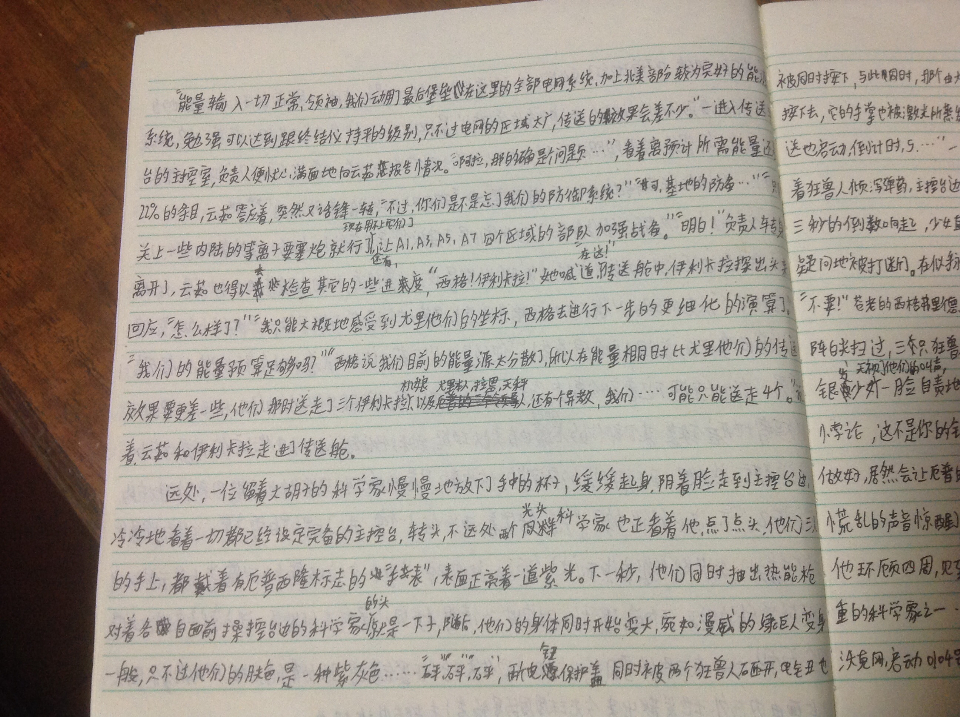 “能量输入一切正常，领袖，我们动用了最后堡垒以在这里的全部电网系统，加上北美部份较为完好的能
系统，勉强可以达到跟终结位持平的级别，只不过电网的区域太广，传送的效果会差不少。”一进入传送
台的主控室，负责人便忧心满面地向云茹报告情况。“啊拉，那的确是个问题…”，看着离预计所需能量还
22%的条目，云茹答应着，突然又话锋一转，“不过，你们是不是忘了我们的防御系统？”“基地的防备…”
现在用不上它们了
关上一些内陆的等离子要塞炮就行了，让A1，A3，A5，A7四个区域的部队加强战备。”“明白！”负责人转
还有，
离开了，云茹也得以去检查其它的一些进度，“西格！伊利卡拉！”她喊道，“在这！”传送舱中，伊利卡拉探出头
回应，“怎么样了？”“我只能大概地感受到尤里他们的坐标，西格去进行下一步的更细化的演算了。
“我们的能量预算足够吗？”“西格说我们目前的能量源太分散了，所以在能量相同时比尤里他们的传送
效果要更差一些，他们那时送走了三个伊利卡拉，以及机娘，拉里，天科，还有个异教，我们……可能只能送走4个。”
着云茹和伊利卡拉走进了传送舱。
远处，一位留着大胡子的科学家慢慢地放下了手中的杯子，缓缓起身，阴着脸走到主控台边，
冷冷地看着一切都已经设定完备的主控台，转头，不远处两个光头科学家也正看着他，点了点头，他们三
的手上，都戴着有厄普西隆标志的“手表”，表面正亮着一道紫光。下一秒，他们同时抽出热能枪
对着各自面前操控台边的科学家的头就是一下子，随后，他们的身体同时开始变大，宛如漫威的绿巨人变身
一般，只不过他们的肤色，是一种紫灰色……“砰，砰，砰”，两个电钮保护盖同时被两个狂兽人砸开，电钮也
被同时按下，与此同时，那个由大
按下去，它的手掌也被激光所
送也启动，倒计时，5……”一
着狂兽人倾泻弹药，主控台边
三秒的倒数向走，
疑问地被打断了。在似
“不要！”苍老的西格弗里德
阵白光扫过，三只狂兽
无视了他们的叫声，
银少女一脸自责地
小学论，这不是你的
做好，居然会让厄普
慌乱的声音惊醒
他环顾四周，见
重的科学家之一…
决竟网，启动0104